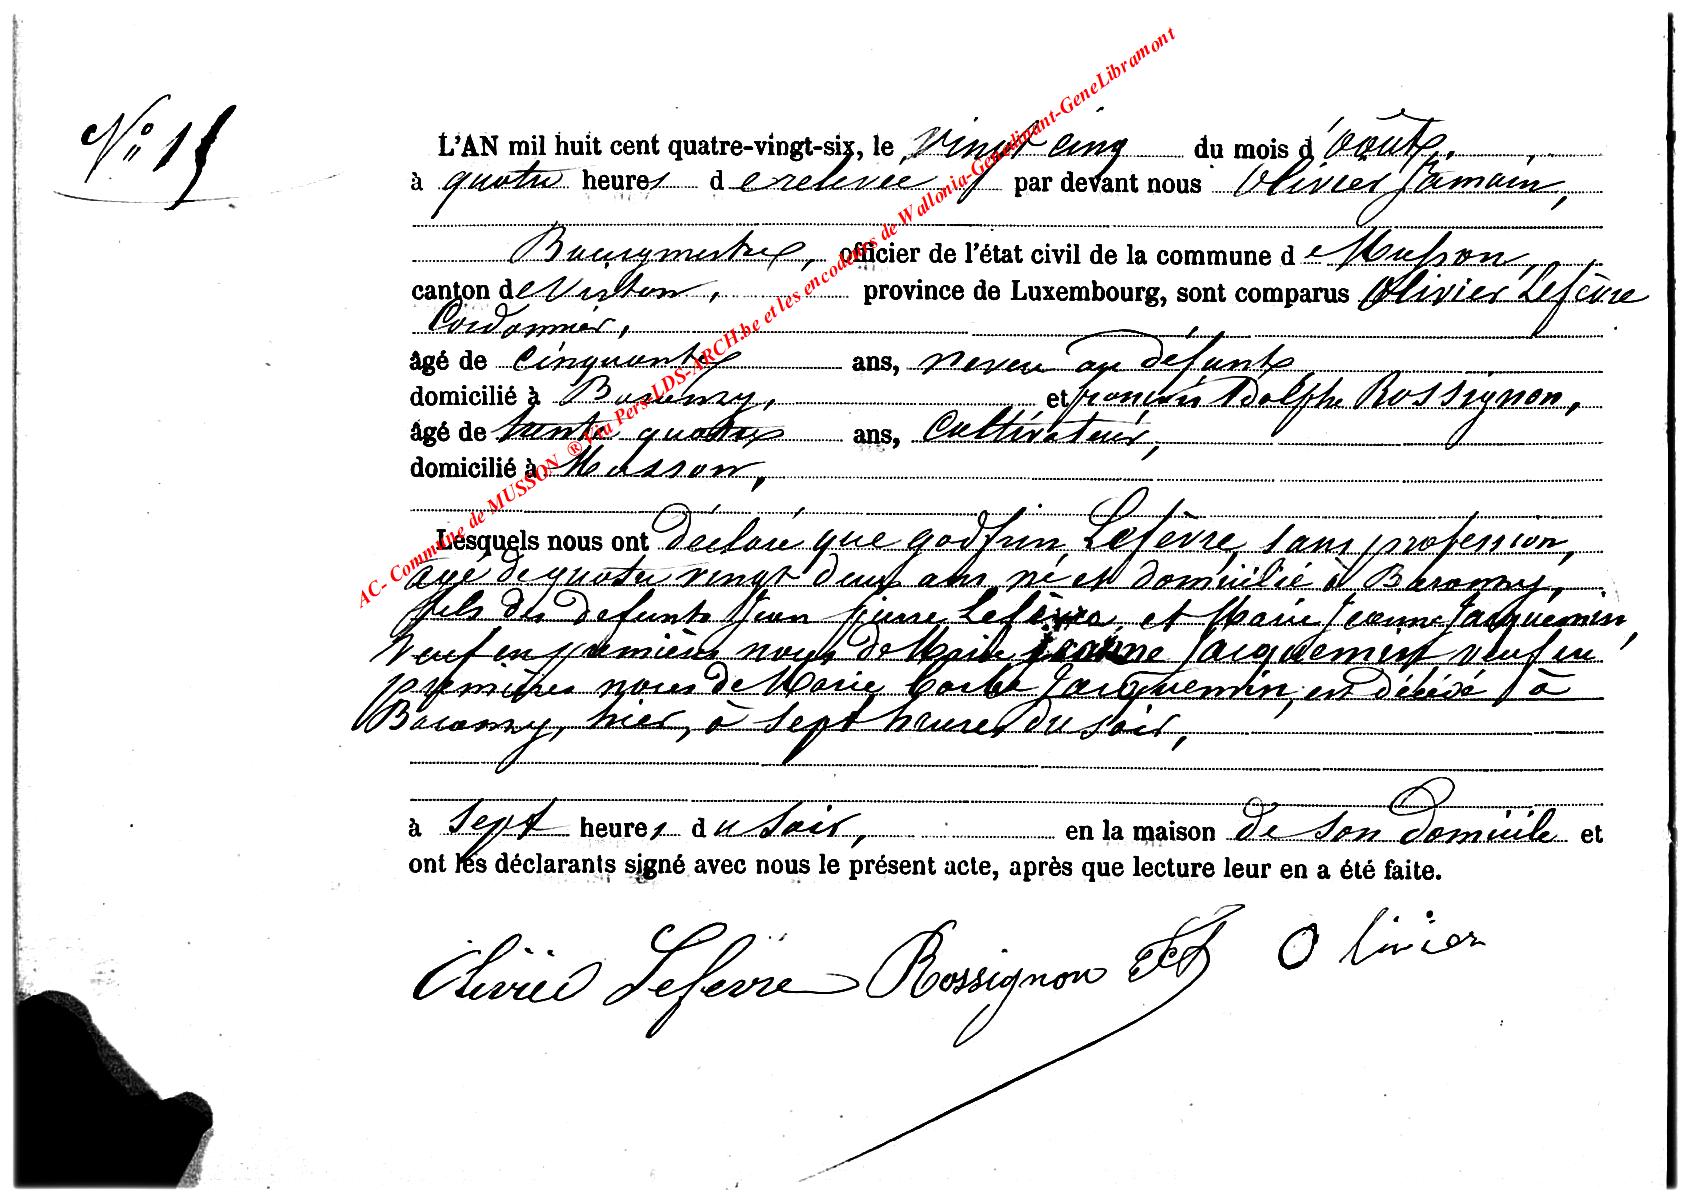 N° 15
L'AN mil huit cent quatre-vingt-six, le vingt cinq du mois d'août,
à quatre heures de relevée par devant nous Olivier Jamain,
Bourgmestre, officier de l'état civil de la commune de Musson,
canton de Virton, province de Luxembourg, sont comparus Olivier Lefèvre
Cordonnier,
âgé de cinquante ans, neveu au défunt
domicilié à Baranzy, et françois Adolphe Rossignon,
âgé de trente quatre ans, Cultivateur,
domicilié à Musson,
Lesquels nous ont déclaré que godfrin Lefèvre, sans profession,
agé de quatre vingt deux ans né et domicilié à Baranzy,
fils des defunts Jean pierre Lefèvre et Marie Jeanne Jacquemin,
Veuf en premières noces de Marie Jeanne Jacquemin veuf en
premières noces de Marie barbe Jacquemin, est décédé à
Baranzy, hier, à sept heures du soir,
à sept heures du soir, en la maison de son domicile et
ont les déclarants signé avec nous le présent acte, après que lecture leur en a été faite.
Olivier Lefevre Rossignon Olivier
AC- Commune de MUSSON ® Via Pers-LDS-ARCH.be et les encodeurs de Wallonia-Genedinant-GeneLibramont